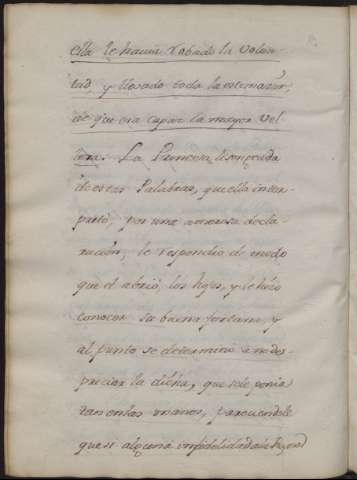 ella le havia robado la volun-
tad, y llevado toda la estimazn,
de que era capaz la mayor vel-
leza. La Princesa lisonjeada
de estas Palabras, que ella inter-
pretó, por una amorosa decla-
ración, le respondio de modo
que el abrió, los hojos, y le hizo
conocer su buena fortuna, y
al punto se determinó a no des-
preciar la dicha, que se le ponia
tan en las manos, pareciendole
que si alguna infidelidad